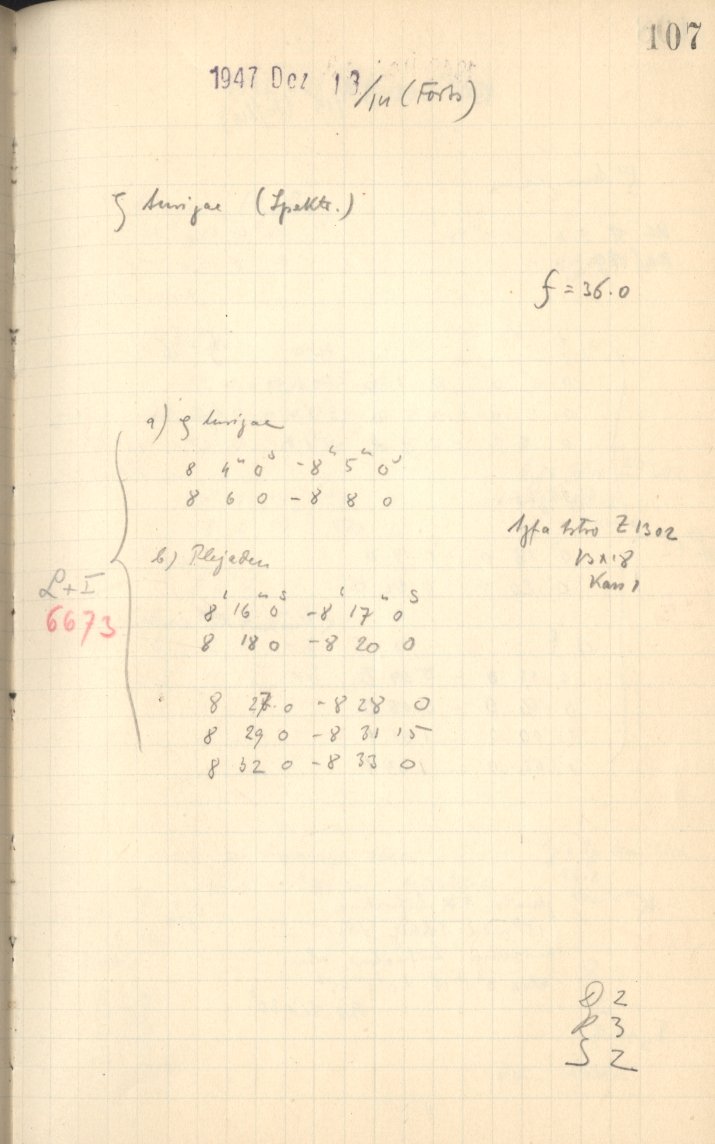 107
1947 Dez 13/14 (Forts)
ζ Aurigae (Spektr.)
f = 36.0
a) ζ Aurigae
8 4ᵐ 0ˢ - 8ʰ 5ᵐ 0ˢ
8 6 0 - 8 8 0
Agfa Astro Z 1302
13 x 18
Kass 1
b) Plejaden
L + I
6673
8 16ᵐ 0ˢ - 8 17ᵐ 0ˢ
8 18 0 - 8 20 0
8 27 0 - 8 28 0
8 29 0 - 8 31 15
8 32 0 - 8 33 0
D 2
R 3
S 2